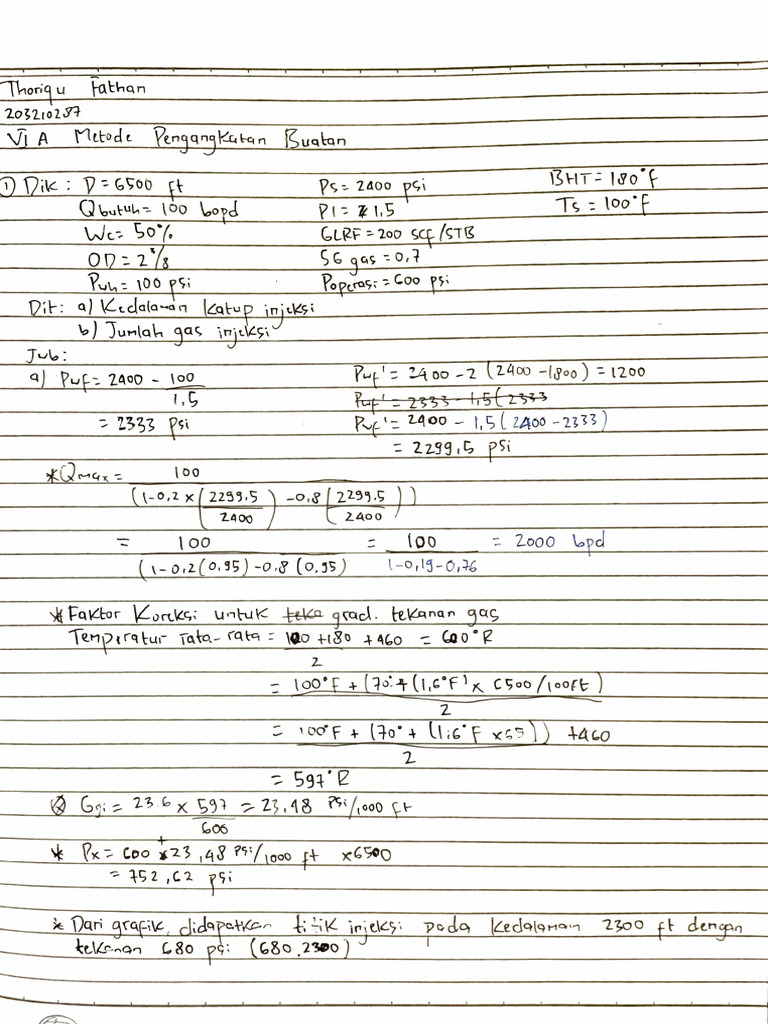 Thoriqu Fathan
203210257
VI A Metode Pengangkatan Buatan
① Dik : D = 6500 ft Ps = 2400 psi BHT = 180°F
Qbutuh = 100 bopd PI = 1,5 Ts = 100°F
Wc = 50% GLRF = 200 scf/STB
OD = 2 3/8 SG gas = 0,7
Pwh = 100 psi Poperasi = 600 psi
Dit : a) Kedalaman katup injeksi
b) Jumlah gas injeksi
Jwb :
a) Pwf = 2400 - 100/1,5 Pwf' = 2400 - 2 (2400 - 1800) = 1200
Pwf' = 2333 - 1,5 (2333
= 2333 psi Pwf' = 2400 - 1,5 (2400 - 2333)
= 2299,5 psi
*Qmax = 100 / (1-0,2 x (2299,5/2400) - 0,8 (2299,5/2400))
= 100 / (1-0,2 (0,95) - 0,8 (0,95) = 100 / 1-0,19-0,76 = 2000 bpd
* Faktor Koreksi untuk grad. tekanan gas
Temperatur rata-rata = 100 + 180 / 2 + 460 = 600°R
= 100°F + (70° + (1,6°F) x 6500/100ft) / 2
= 100°F + (70° + (1,6°F x 65)) / 2 + 460
= 597°R
Ggi = 23.6 x 597/600 = 23,48 Psi/1000 ft
* Px = 600 + 23,48 psi/1000 ft x 6500
= 752,62 psi
* Dari grafik, didapatkan titik injeksi pada kedalaman 2300 ft dengan
tekanan 680 psi (680,2300)